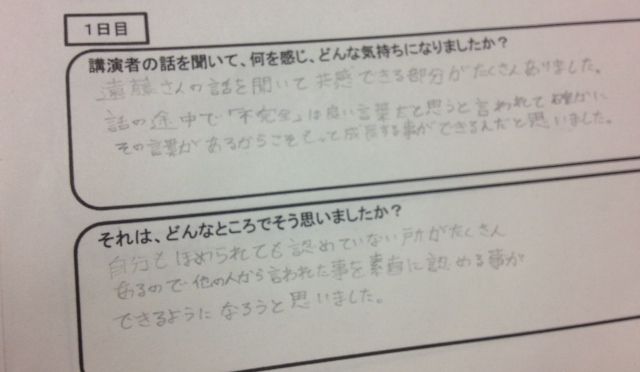 1日目
講演者の話を聞いて、何を感じ、どんな気持ちになりましたか？
遠藤さんの話を聞いて共感できる部分がたくさんありました。
話の途中で「不完全」は良い言葉だと思うと言われて確かに
その言葉があるからこそもっと成長する事ができるんだと思いました。
それは、どんなところでそう思いましたか？
自分もほめられても認めていない所がたくさん
あるので他の人から言われた事を素直に認める事が
できるようになろうと思いました。